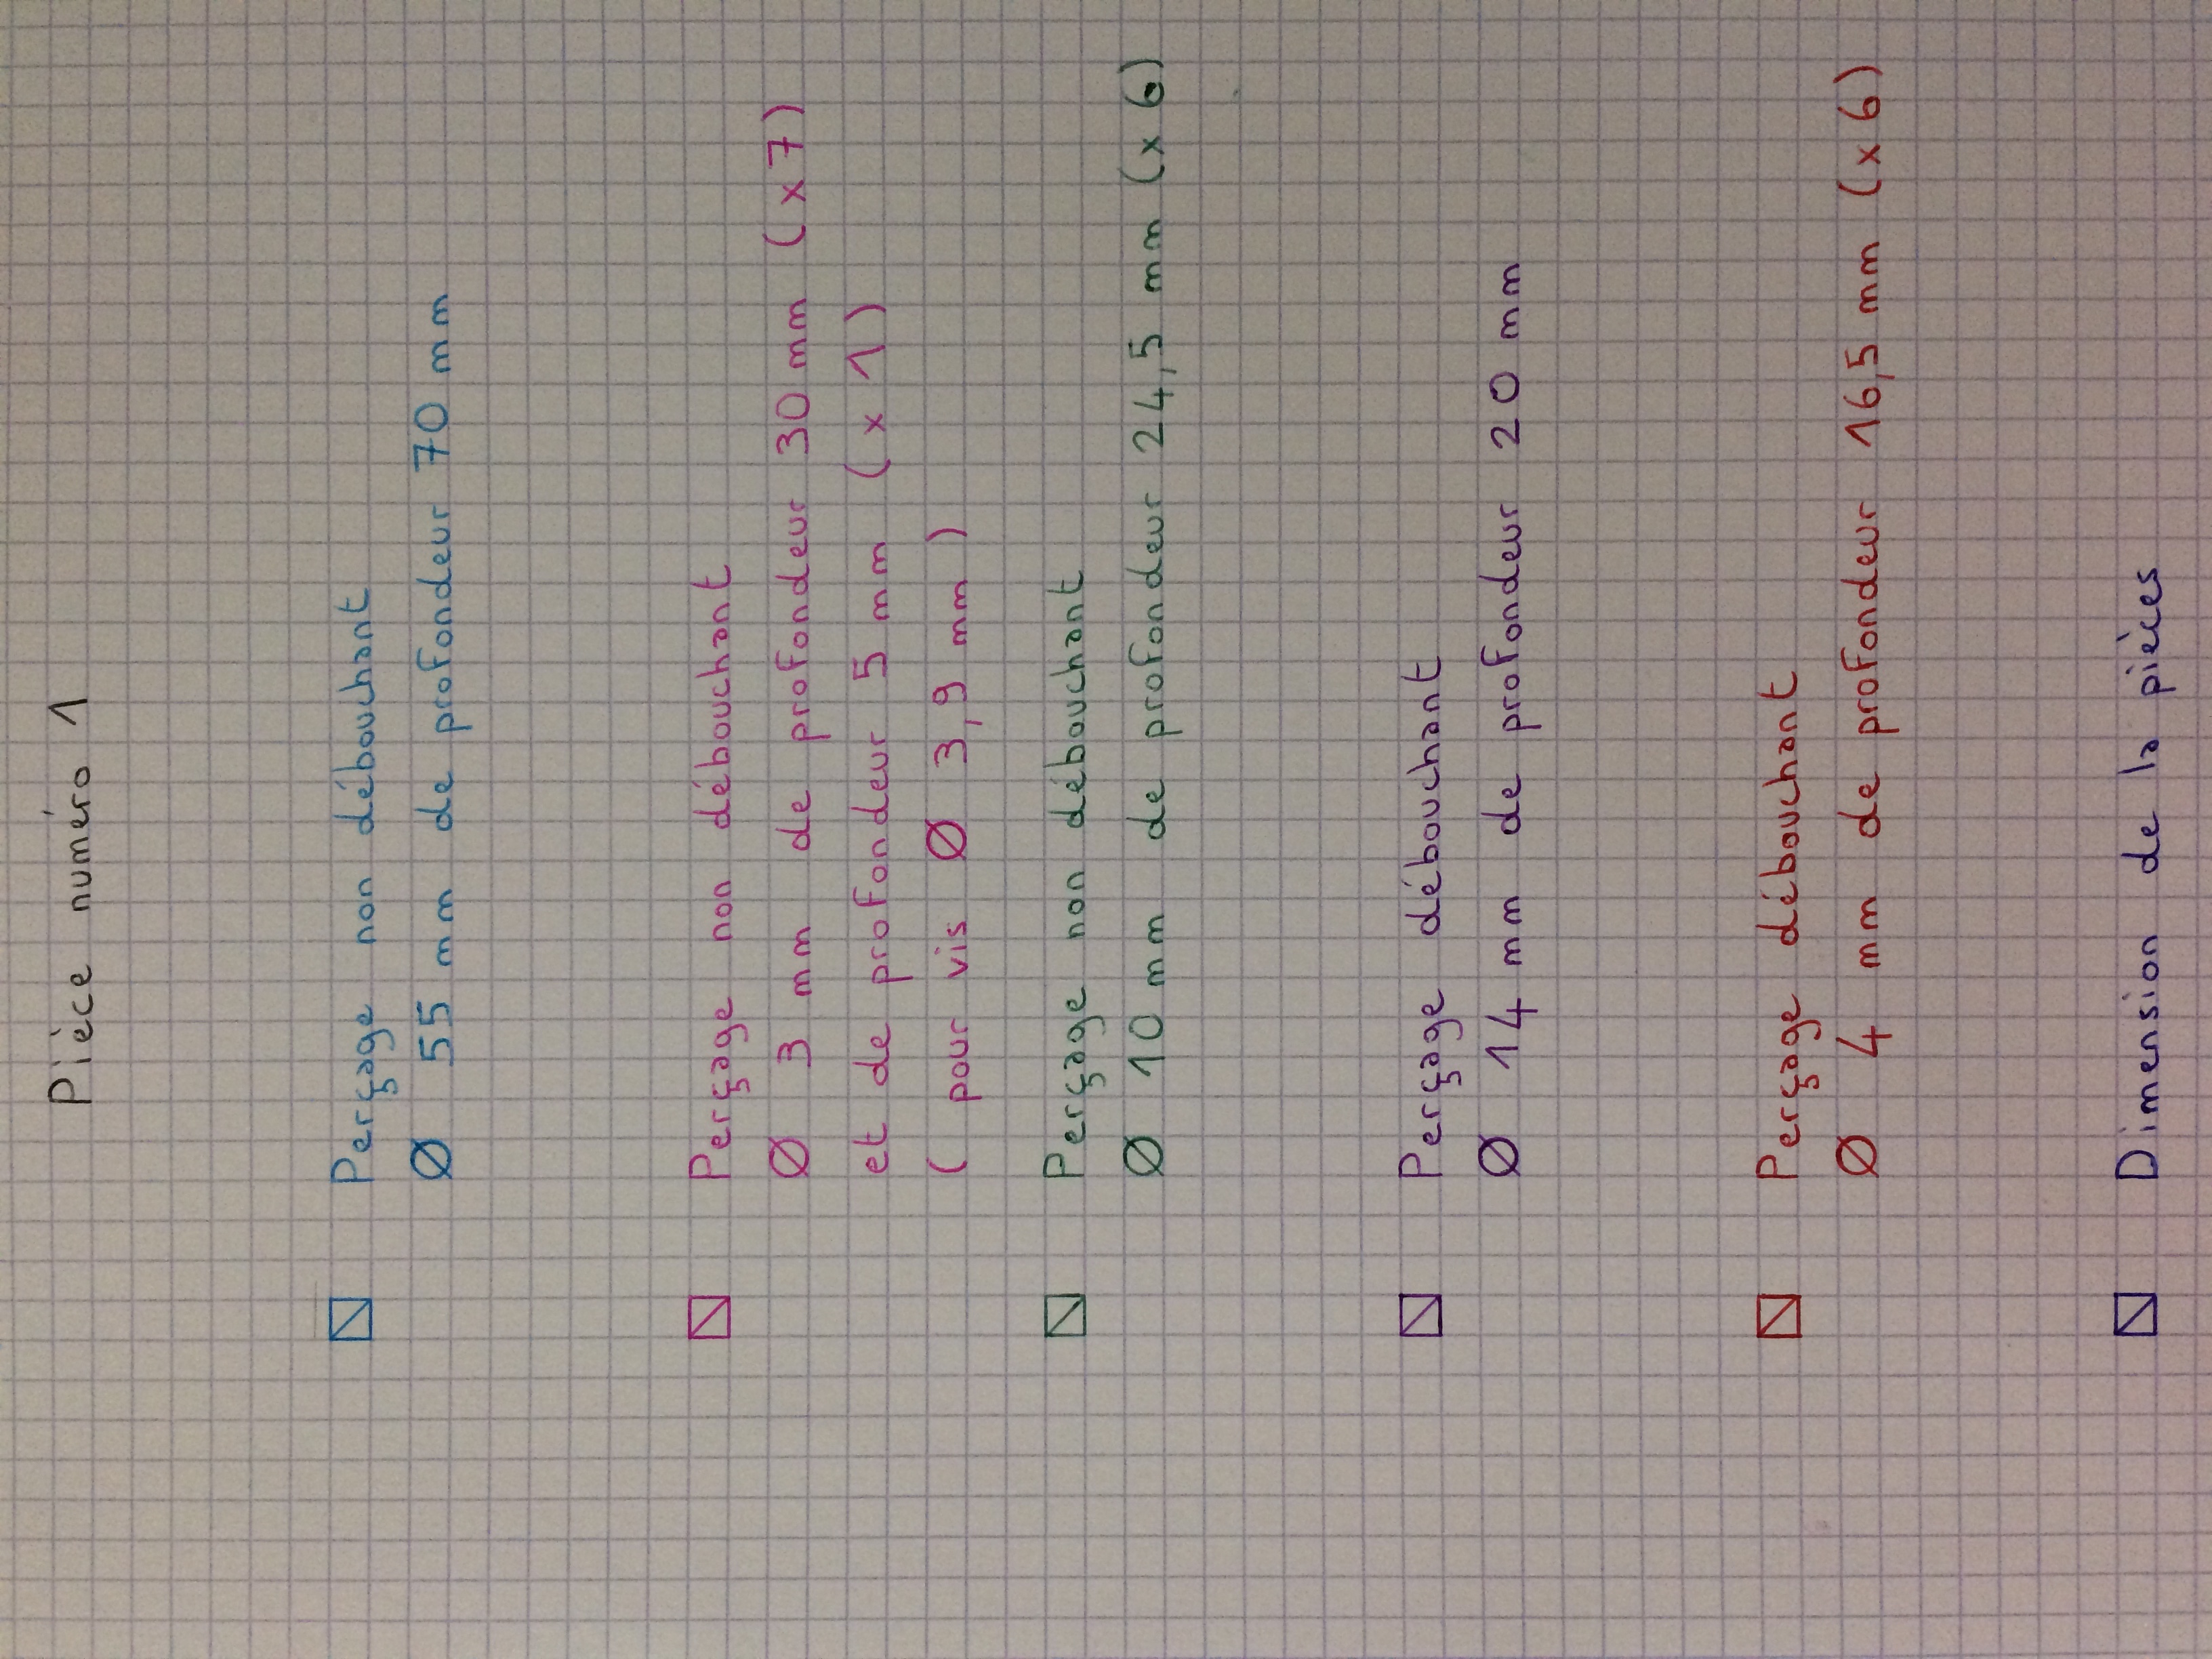 Pièce numéro 1
Perçage non débouchant
Ø 55 mm de profondeur 70 mm
Perçage non débouchant
Ø 3 mm de profondeur 30 mm (x7)
et de profondeur 5 mm (x 1)
( pour vis Ø 3,9 mm )
Perçage non débouchant
Ø 10 mm de profondeur 24,5 mm (x 6)
Perçage débouchant
Ø 14 mm de profondeur 20 mm
Perçage débouchant
Ø 4 mm de profondeur 16,5 mm (x 6)
Dimension de la pièces